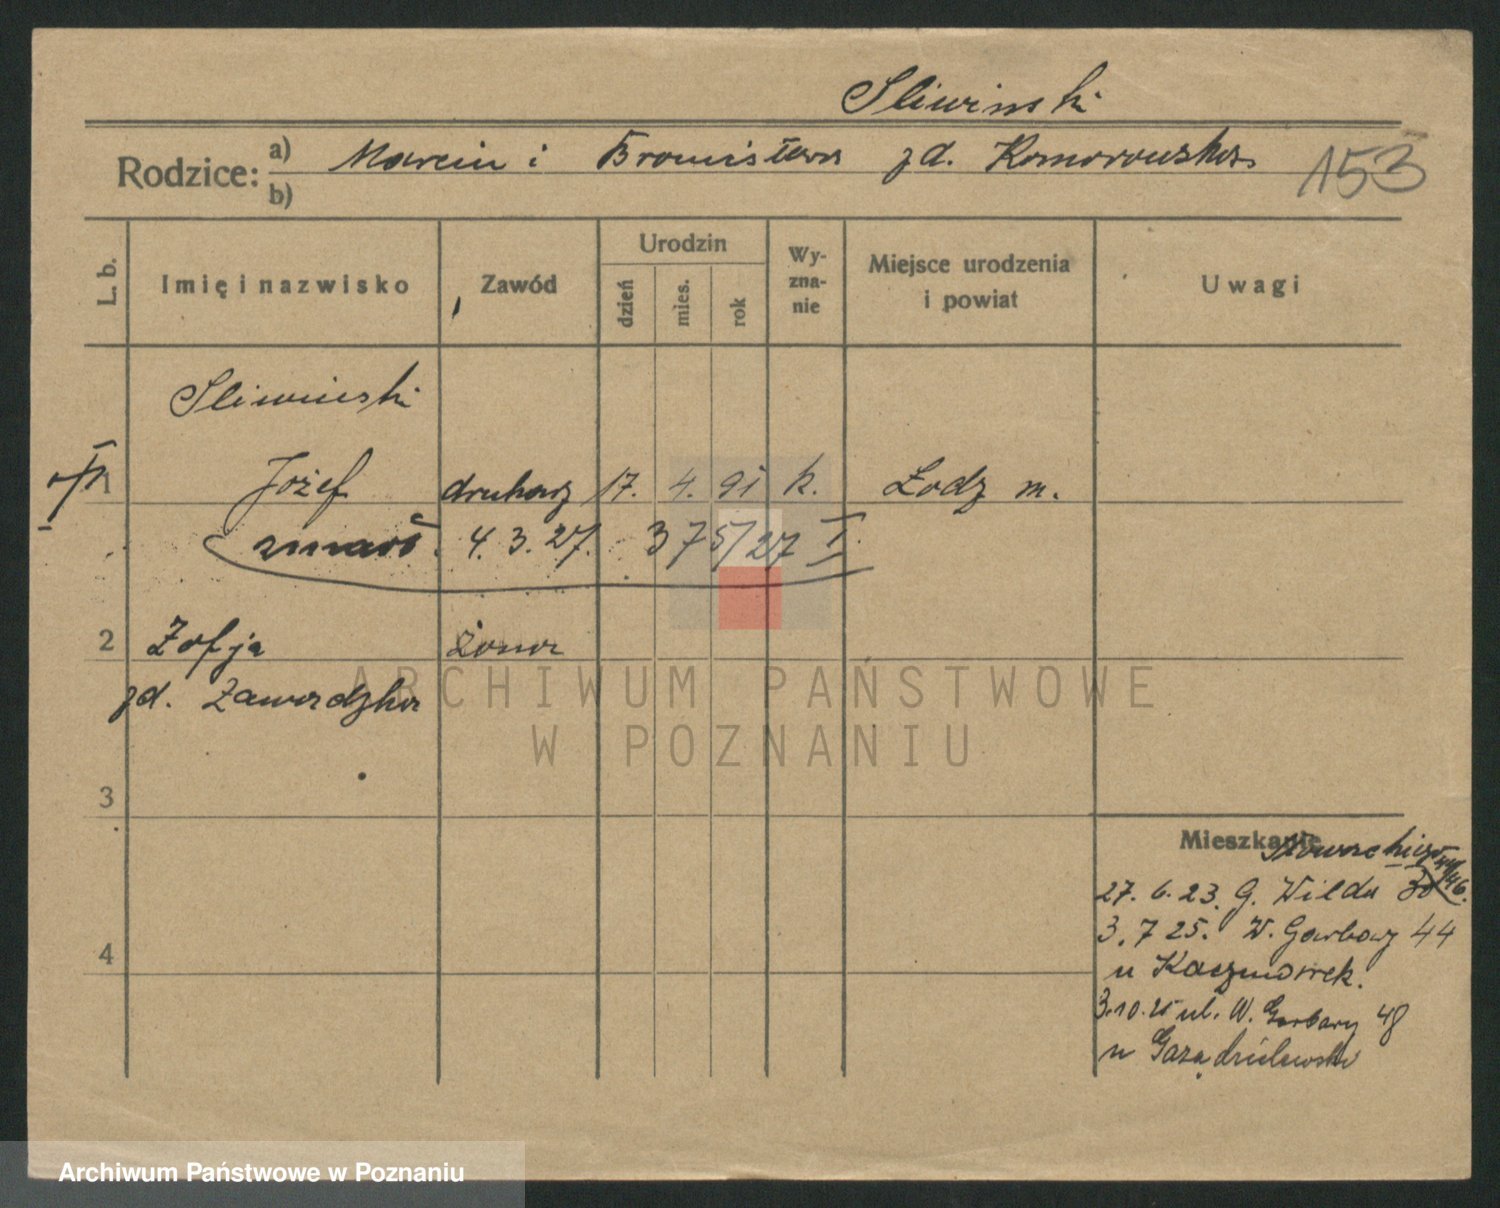 Sliwinski
Rodzice: a) Marcin i Bronisława zd. Komorowska 153
b)
L. b. Imię i nazwisko Zawód Urodzin dzień mies. rok Wyznanie Miejsce urodzenia i powiat Uwagi
Sliwinski
1 Józef drukarz 17. 4. 91 k. Łodz m.
zmarł. 4. 3. 27. 375/27 I.
2 Zofja żona
zd. Zawadzka
ARCHIWUM PAŃSTWOWE
W POZNANIU
3
Mieszkanie
27. 6. 23. G. Wilda
3. 7 25. W. Garbary 44
4
u Kaczmarek.
3.10.25 ul. W. Garbary 48
u
Archiwum Państwowe w Poznaniu